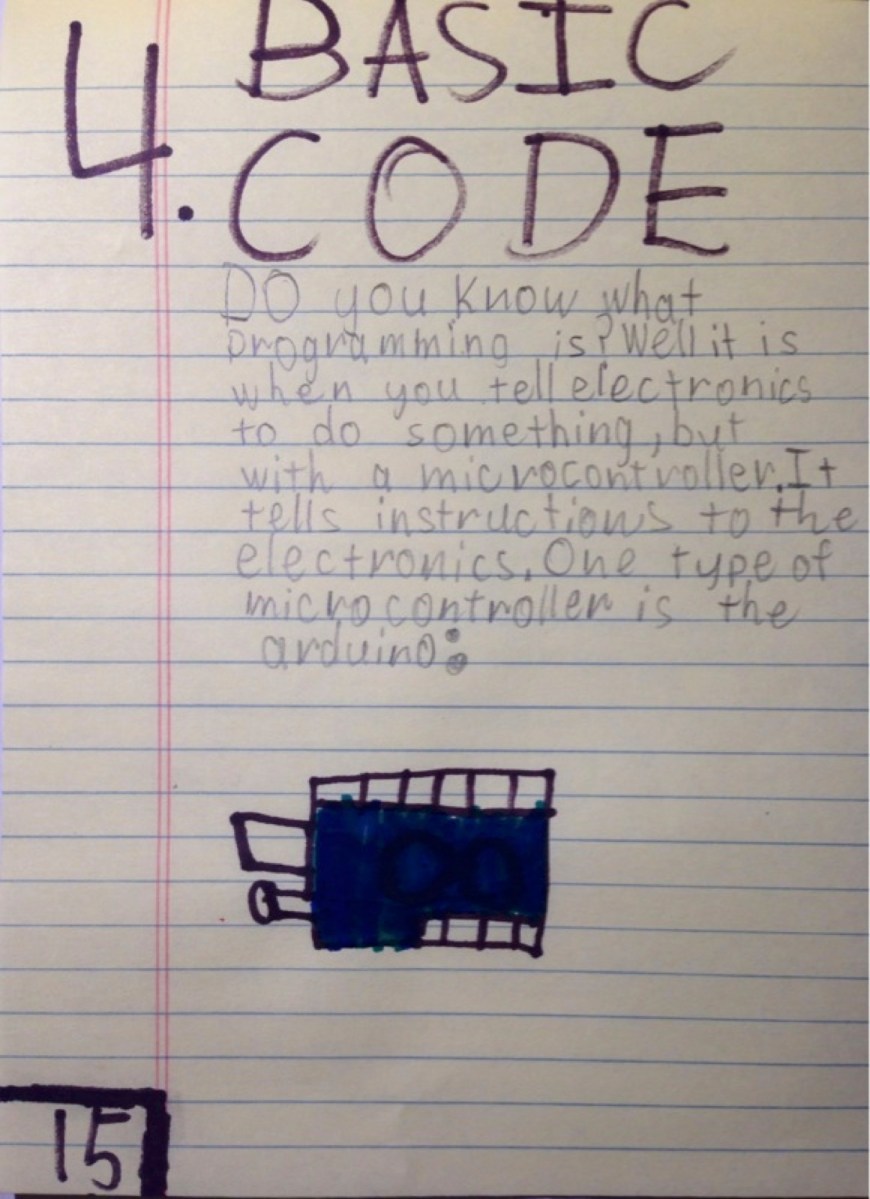 4. BASIC
CODE
DO you know what
programming is? Well it is
when you tell electronics
to do something, but
with a microcontroller. It
tells instructions to the
electronics. One type of
microcontroller is the
arduino:
15